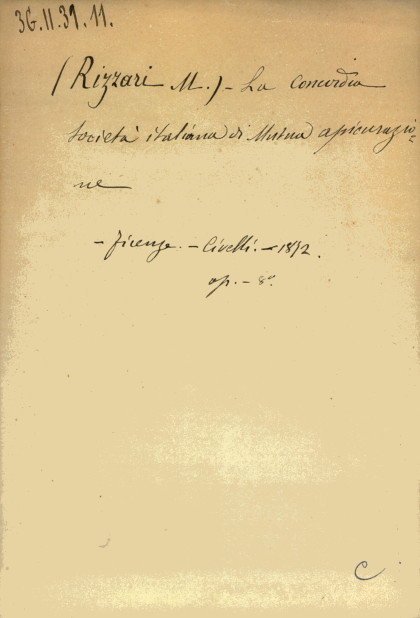 36.II.31.11.
(Rizzari M.) - La Concordia
Società italiana di Mutua assicurazio=
ne
- Firenze. - Civelli. - 1872.
op. - 8º.
C